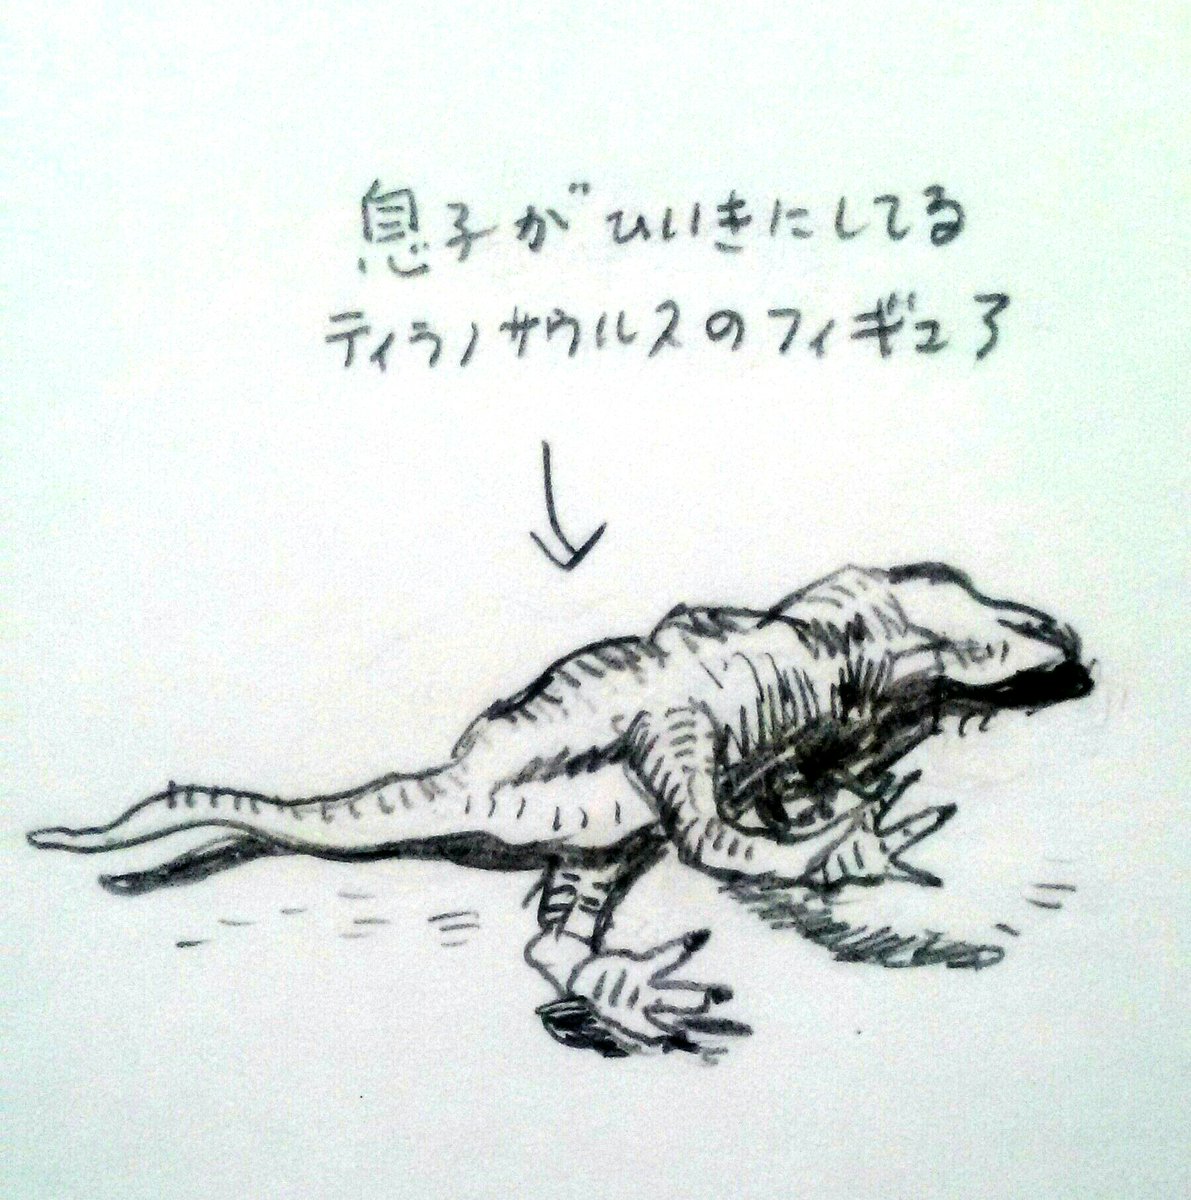 息子がひいきにしてる
ティラノサウルスのフィギュア